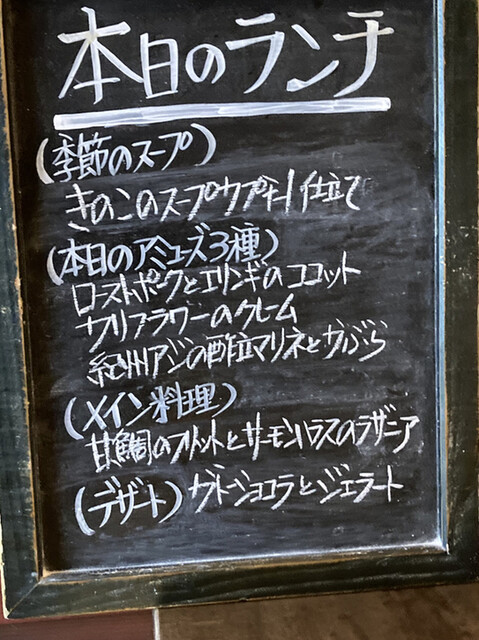 本日のランチ
(季節のスープ)
きのこのスープカプチーノ仕立て
(本日のアミューズ3種)
ローストポークとエリンギのココット
カリフラワーのクレーム
紀州アジの酢〆マリネとかぶら
(メイン料理)
甘鯛のフリットとサーモンハラスのラザニア
(デザート)ガトーショコラとジェラート